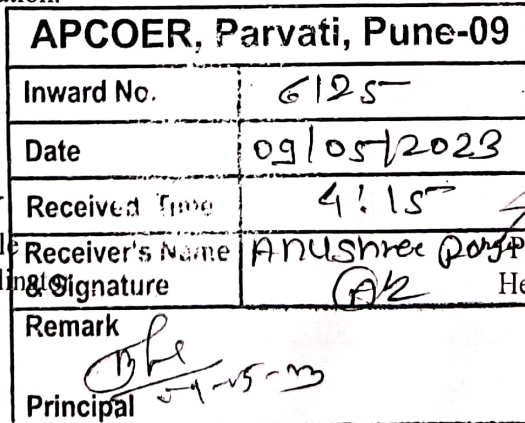 APCOER, Parvati, Pune-09
Inward No. 6125
Date 09/05/2023
Received Time 4:15
Receiver's Name Anushree
& Signature
Remark
Principal